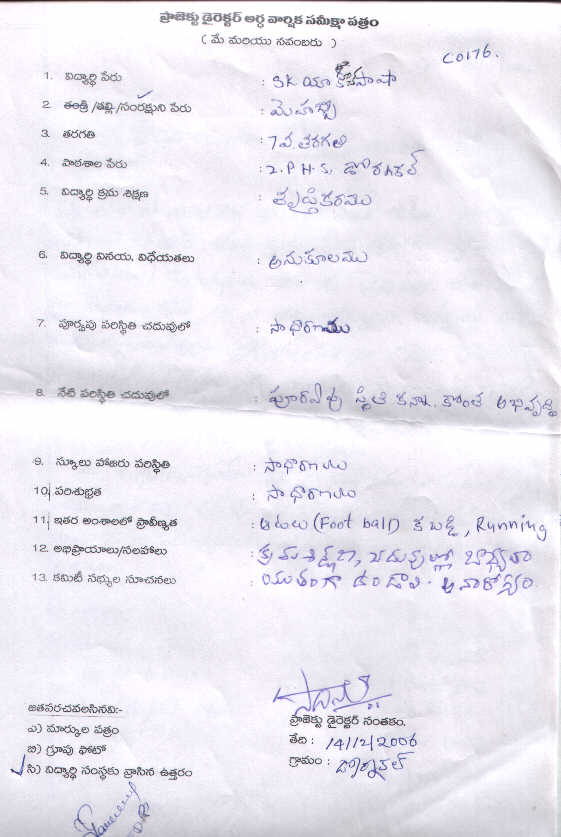 ప్రాజెక్టు డైరెక్టర్ అర్ధ వార్షిక సమీక్షా పత్రం
( మే మరియు నవంబరు )
C0176.
1. విద్యార్థి పేరు : SK యాకోబ్ పాషా
2. తండ్రి/తల్లి/సంరక్షుని పేరు : మెహబూబీ
3. తరగతి : 7వ. తరగతి
4. పాఠశాల పేరు : Z.P.H.S. డోర్నకల్
5. విద్యార్థి క్రమ శిక్షణ : తృప్తికరము
6. విద్యార్థి వినయ, విధేయతలు : అనుకూలము
7. పూర్వపు పరిస్థితి చదువులో : సాధారణము
8. నేటి పరిస్థితి చదువులో : పూర్వపు స్థితి కన్నా. కొంత అభివృద్ధి
9. స్కూలు హాజరు పరిస్థితి : సాధారణము
10. పరిశుభ్రత : సాధారణము
11. ఇతర అంశాలలో ప్రావీణ్యత : ఆటలు (Foot ball) కబడ్డీ, Running
12. అభిప్రాయాలు/సలహాలు : క్రమశిక్షణ, చదువుల్లో బాధ్యతా
13. కమిటీ సభ్యుల సూచనలు : యుతంగా ఉండాలి. అనారోగ్యం.
జతపరచవలసినవి:-
ఎ) మార్కుల పత్రం
బి) గ్రూపు ఫోటో
సి) విద్యార్థి సంస్థకు వ్రాసిన ఉత్తరం
ప్రాజెక్టు డైరెక్టర్ సంతకం.
తేది : 14/12/2006
గ్రామం : డోర్నకల్